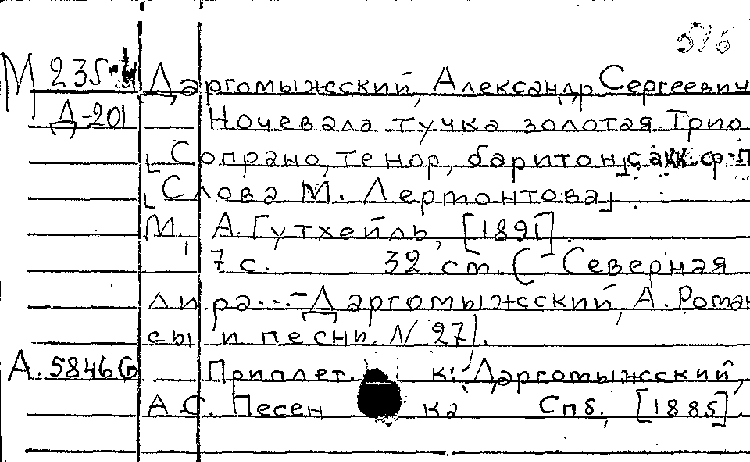 М 235 Даргомыжский, Александр Сергеевич
Д-201 Ночевала тучка золотая. Трио
[Сопрано, тенор, баритон] с акк. ф-п
[Слова М. Лермонтова].
М., А. Гутхейль, [1891].
7 с. 32 см. (-Северная
лира...-Даргомыжский, А. Роман
сы и песни. N 27).
А. 5846 Приплет. к: Даргомыжский,
А.С. Песен ка Спб., [1885].